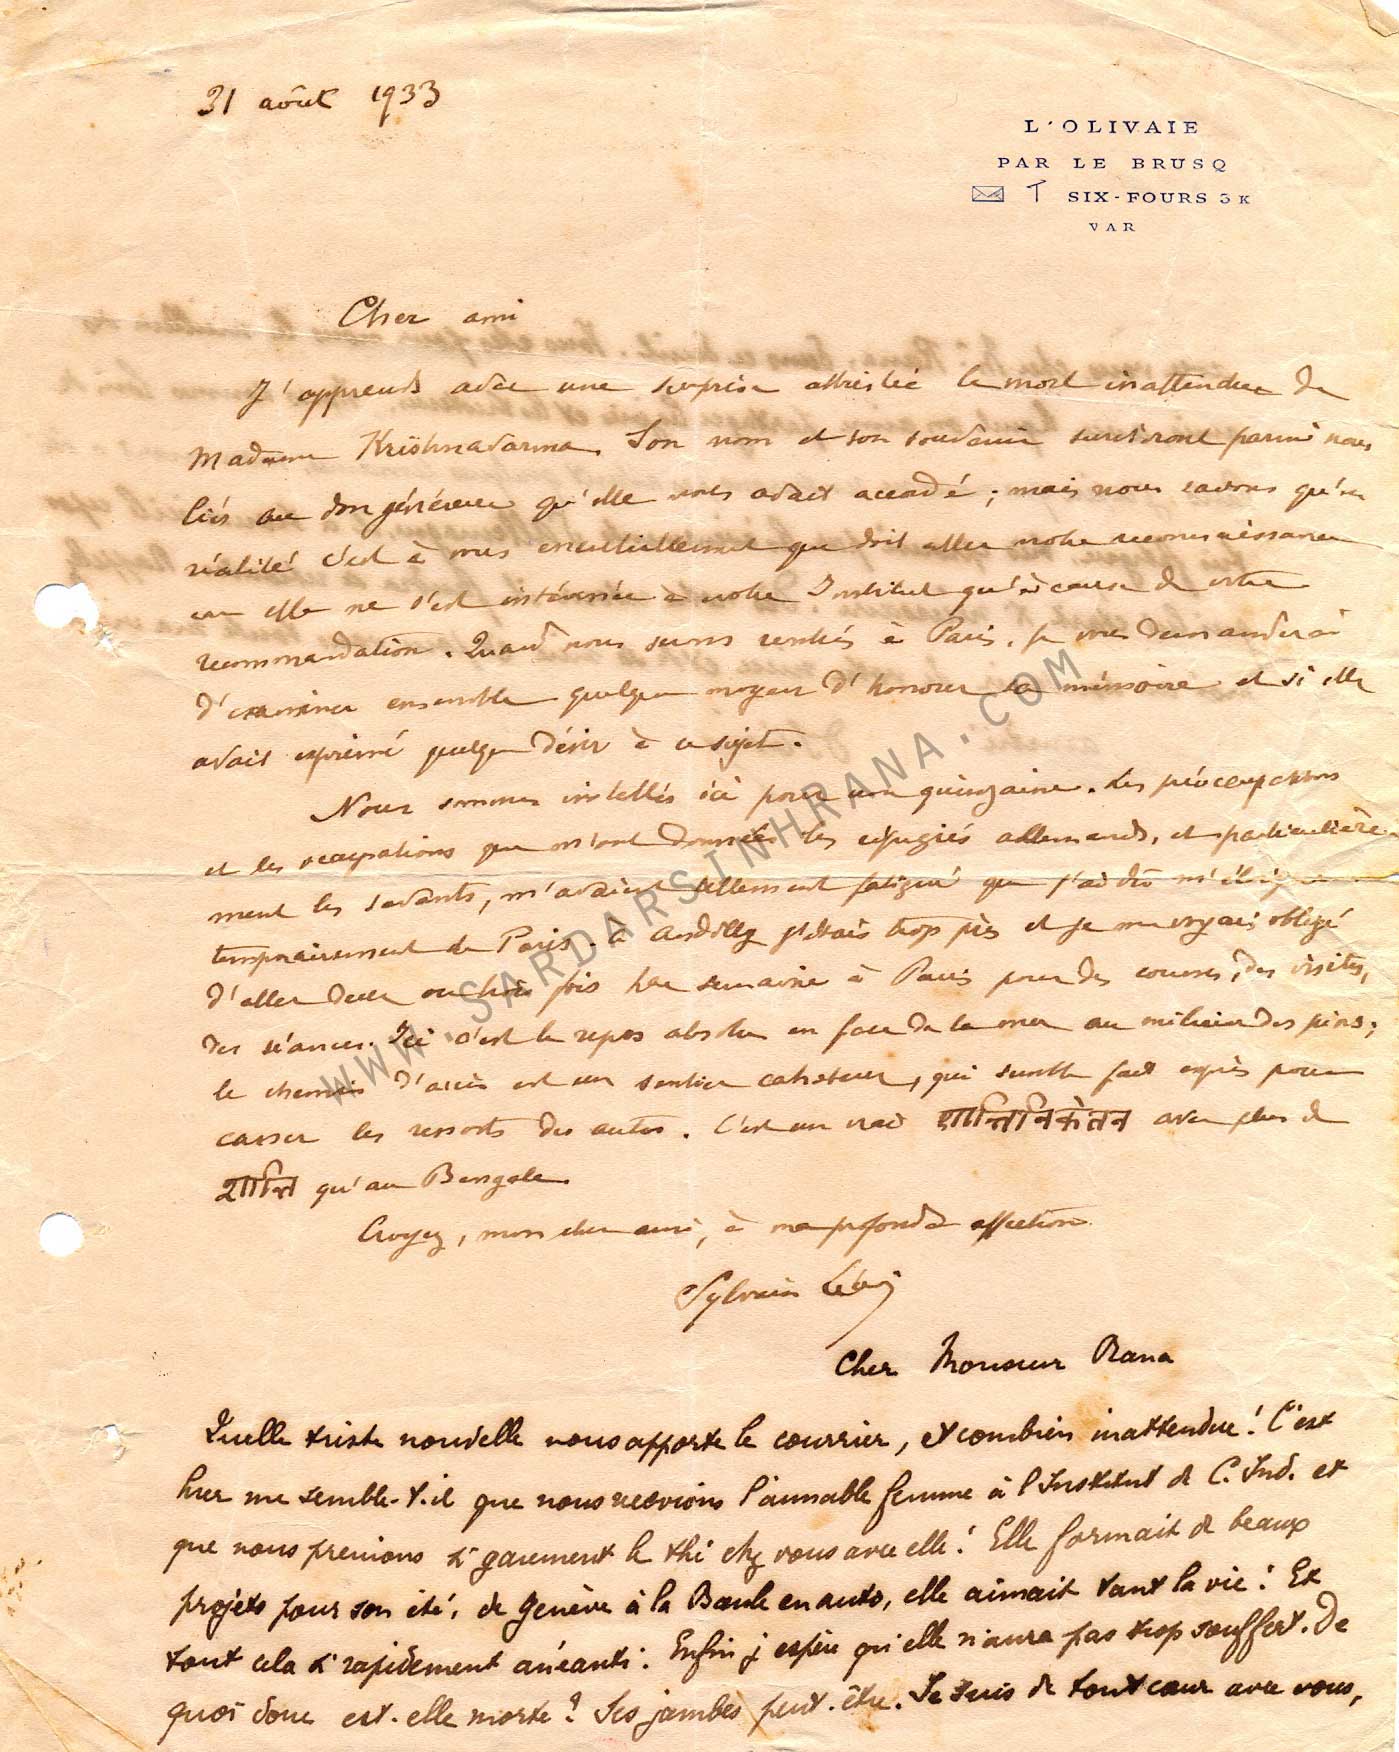 31 août 1933
L'OLIVAIE
PAR LE BRUSQ
SIX-FOURS 3 K
VAR
Cher ami
J'apprends avec une surprise attristée la mort inattendue de
Madame Krishnavarma. Son nom et son souvenir survivront parmi nous
liés au don généreux qu'elle nous avait accordé ; mais nous savons qu'en
réalité c'est à vous essentiellement que doit aller notre reconnaissance
car elle ne s'est intéressée à notre Institut qu'à cause de votre
recommandation. Quand nous serons rentrés à Paris, je vous demanderai
d'examiner ensemble quelque moyen d'honorer sa mémoire et si elle
avait exprimé quelque désir à ce sujet.
Nous sommes installés ici pour une quinzaine. Les préoccupations
et les occupations que m'ont données les réfugiés allemands, et particulière
ment les savants, m'avaient tellement fatigué que j'ai dû m'éloigner
temporairement de Paris. À Andilly j'étais trop près et je me voyais obligé
d'aller deux ou trois fois par semaine à Paris pour des courses, des visites,
des séances. Ici c'est le repos absolu en face de la mer au milieu des pins ;
le chemin d'accès est un sentier cahoteux, qui semble fait exprès pour
casser les ressorts des autos. C'est un vrai शान्तिनिकेतन avec plus de
शान्ति qu'au Bengale.
Croyez, mon cher ami, à ma profonde affection
Sylvain Lévi
Cher Monsieur Rana
Quelle triste nouvelle nous apporte le courrier, et combien inattendue ! C'est
hier me semble-t-il que nous recevions l'aimable femme à l'Institut de C. Ind. et
que nous prenions si gaiement le thé chez vous avec elle ! Elle formait de beaux
projets pour son été, de Genève à la Baule en auto, elle aimait tant la vie ! Et
tout cela si rapidement anéanti. Enfin j'espère qu'elle n'aura pas trop souffert. De
quoi donc est-elle morte ? Ses jambes peut-être. Je suis de tout cœur avec vous,
WWW.SARDARSINHRANA.COM